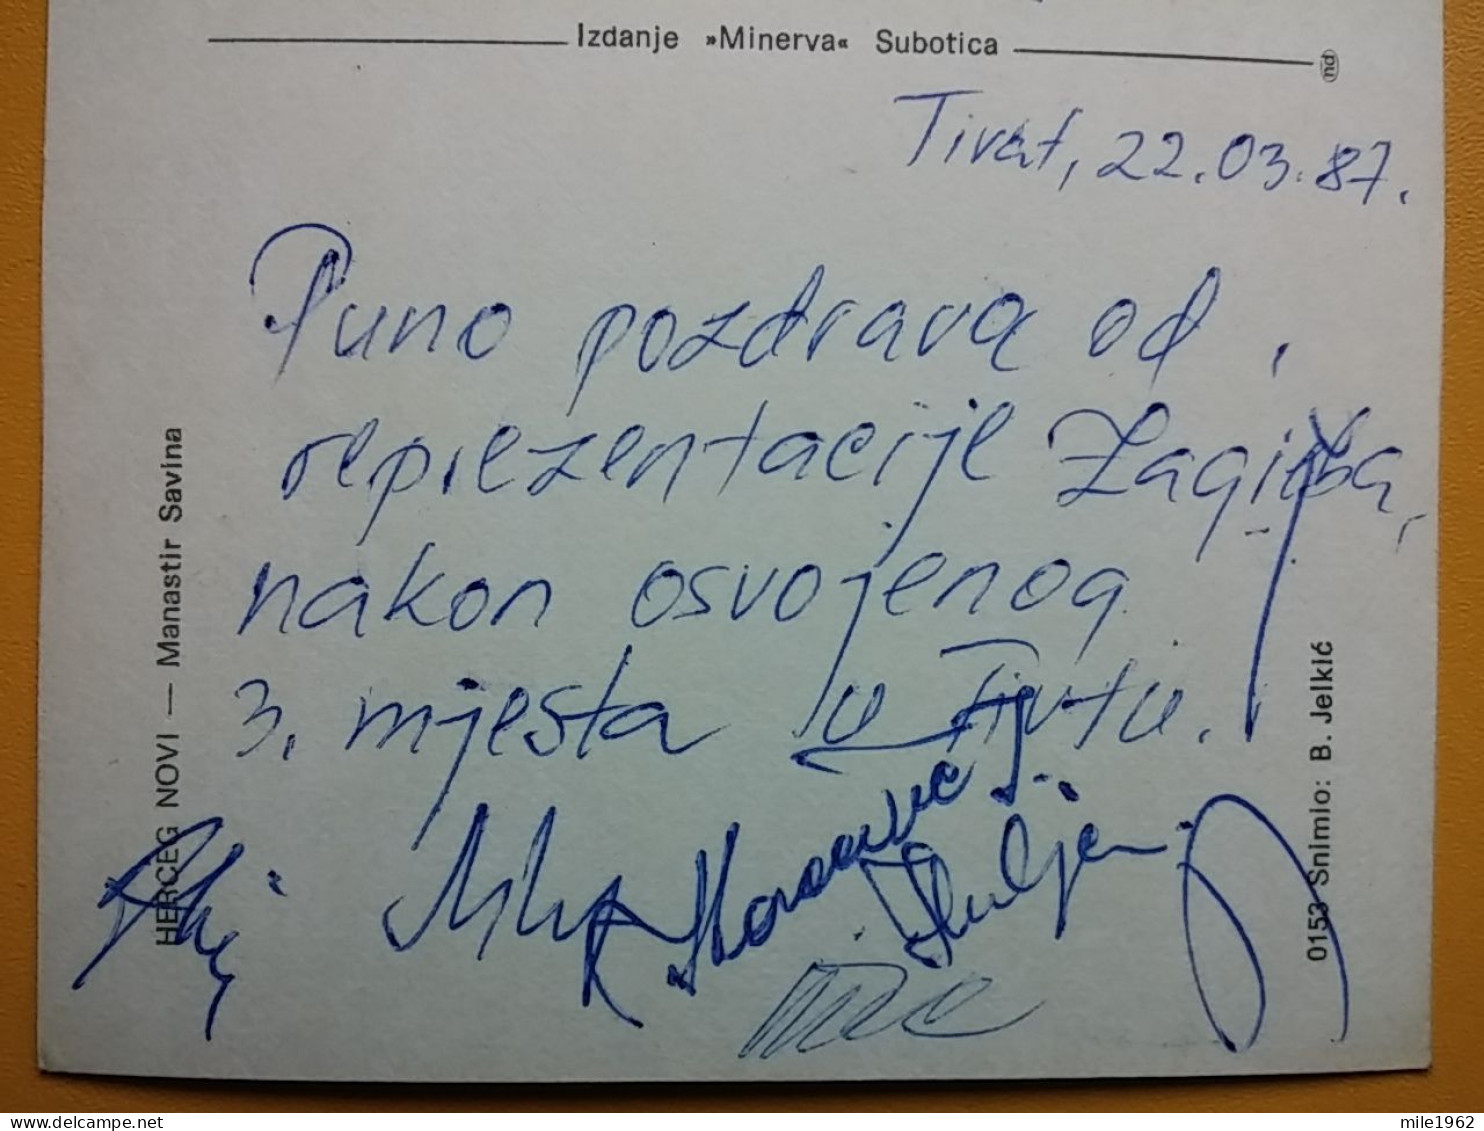 Izdanje »Minerva« Subotica
Tivat, 22.03.87.
Puno pozdrava od
reprezentacije Zagreba,
nakon osvojenog
3. mjesta u Tivtu.
HERCEG NOVI — Manastir Savina
0153 Snimio: B. Jelkić
mile1962